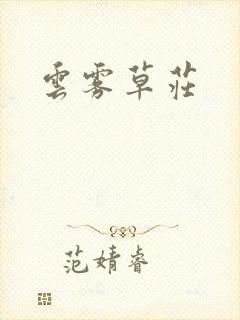 雲雾草莊
范婧睿